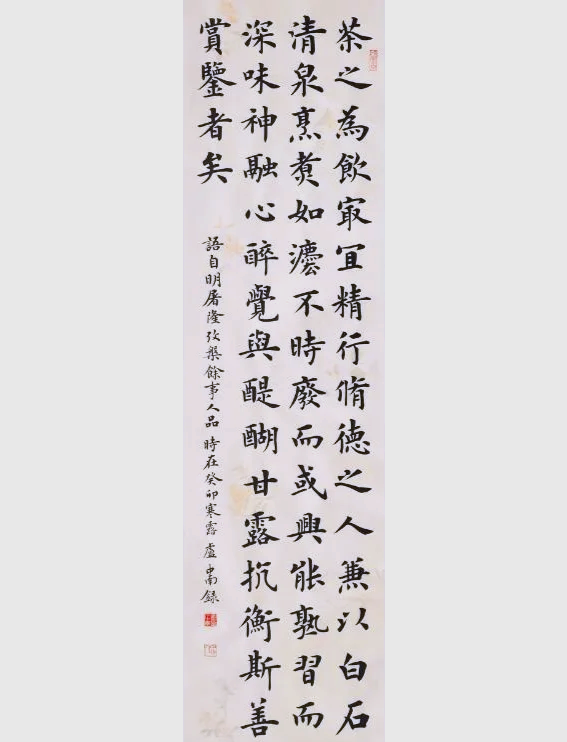 茶之為飲㝡宜精行脩德之人兼以白石
清泉烹煑如灋不時廢而或興能熟習而
深味神融心醉覺與醍醐甘露抗衡斯善
賞鑒者矣
語自明屠隆攷槃餘事人品 時在癸卯寒露 盧中南録